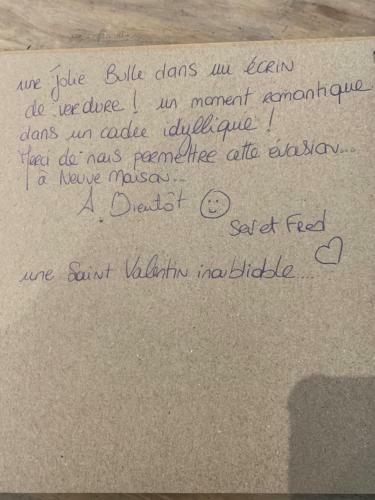 une jolie Bulle dans un ÉCRIN
de verdure ! un moment romantique
dans un cadre idyllique !
Merci de nous permettre cette évasion...
à Neuve Maison...
A Bientôt
Sev et Fred
une Saint Valentin inoubliable....